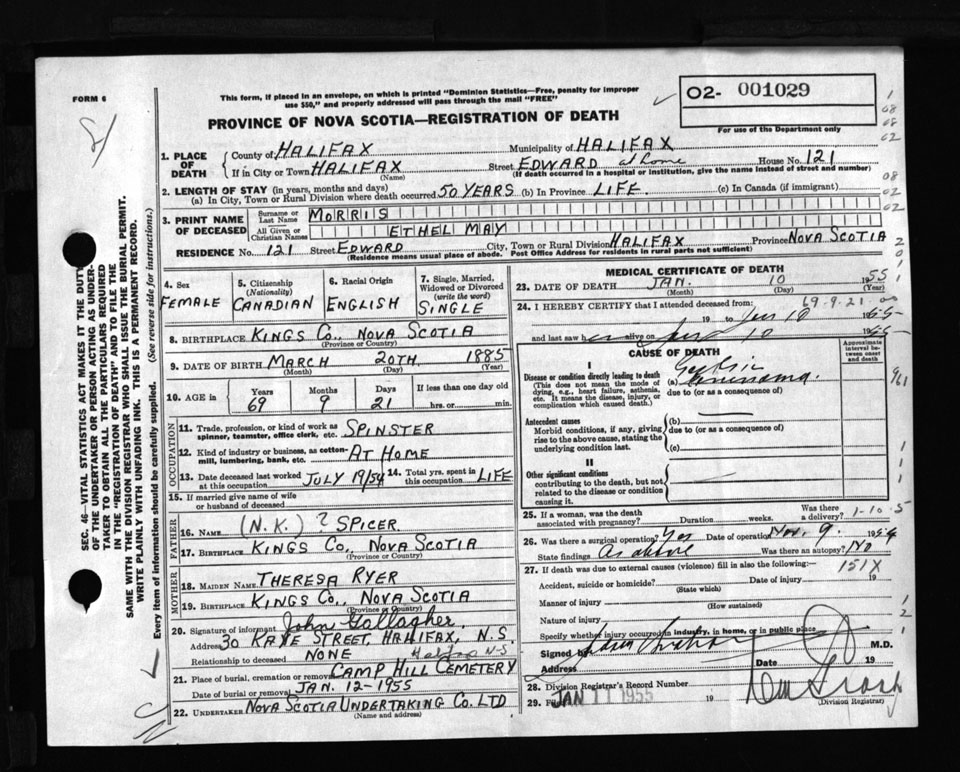 FORM 6
This form, if placed in an envelope, on which is printed "Dominion Statistics—Free, penalty for improper
use $50," and properly addressed will pass through the mail "FREE"
PROVINCE OF NOVA SCOTIA—REGISTRATION OF DEATH
02- 001029
For use of the Department only
1. PLACE OF DEATH
County of HALIFAX Municipality of HALIFAX
If in City or Town HALIFAX Street EDWARD at home House No. 121
(Name) (If death occurred in a hospital or institution, give the name instead of street and number)
2. LENGTH OF STAY (in years, months and days)
(a) In City, Town or Rural Division where death occurred 50 YEARS (b) In Province LIFE. (c) In Canada (if immigrant)
3. PRINT NAME OF DECEASED
Surname or Last Name MORRIS
All Given or Christian Names ETHEL MAY
RESIDENCE No. 121 Street EDWARD City, Town or Rural Division HALIFAX Province NOVA SCOTIA
(Residence means usual place of abode. Post Office Address for residents in rural parts not sufficient)
4. Sex FEMALE
5. Citizenship (Nationality) CANADIAN
6. Racial Origin ENGLISH
7. Single, Married, Widowed or Divorced (write the word) SINGLE
8. BIRTHPLACE KINGS CO., NOVA SCOTIA
(Province or Country)
9. DATE OF BIRTH MARCH 20TH, 1885
(Month) (Day) (Year)
10. AGE in Years 69 Months 9 Days 21 If less than one day old hrs. or min.
OCCUPATION
11. Trade, profession, or kind of work as spinner, teamster, office clerk, etc. SPINSTER
12. Kind of industry or business, as cotton-mill, lumbering, bank, etc. AT HOME
13. Date deceased last worked at this occupation JULY 19/54 14. Total yrs. spent in this occupation LIFE
15. If married give name of wife or husband of deceased
FATHER
16. NAME (N.K.) ? SPICER
17. BIRTHPLACE KINGS CO., NOVA SCOTIA
MOTHER
18. MAIDEN NAME THERESA RYER
19. BIRTHPLACE KINGS CO., NOVA SCOTIA
(Province or Country)
20. Signature of informant John Gallagher
Address 30 KAYE STREET, HALIFAX, N.S.
Relationship to deceased NONE Halifax N-S
21. Place of burial, cremation or removal CAMP HILL CEMETERY
Date of burial or removal JAN. 12-1955
22. UNDERTAKER NOVA SCOTIA UNDERTAKING CO. LTD
(Name and address)
MEDICAL CERTIFICATE OF DEATH
23. DATE OF DEATH JAN. 10 1955
(Month) (Day) (Year)
24. I HEREBY CERTIFY that I attended deceased from: 69-9-21-00
19 to Jan 10 1955
and last saw her alive on Jan 10 1955
CAUSE OF DEATH
Approximate interval between onset and death
I
Disease or condition directly leading to death
(This does not mean the mode of dying, e.g., heart failure, asthenia, etc. It means the disease, injury, or complication which caused death.)
(a) Gastric Carcinoma
due to (or as a consequence of)
Antecedent causes
Morbid conditions, if any, giving rise to the above cause, stating the underlying condition last.
(b)
due to (or as a consequence of)
(c)
II
Other significant conditions
contributing to the death, but not related to the disease or condition causing it.
25. If a woman, was the death associated with pregnancy? Duration weeks. Was there a delivery? 1-10-5
26. Was there a surgical operation? Yes Date of operation Nov. 9. 1954
State findings As above Was there an autopsy? No
27. If death was due to external causes (violence) fill in also the following:— 151X
Accident, suicide or homicide? Date of injury 19
(State which)
Manner of injury
(How sustained)
Nature of injury
Specify whether injury occurred in industry, in home, or in public place
Signed by M.D.
Address Date 19
28. Division Registrar's Record Number
29. Filed JAN 11 1955 19
(Division Registrar)
SEC. 46—VITAL STATISTICS ACT MAKES IT THE DUTY
OF THE UNDERTAKER OR PERSON ACTING AS UNDER-
TAKER TO OBTAIN ALL THE PARTICULARS REQUIRED
IN THE "REGISTRATION OF DEATH" AND TO FILE THE
SAME WITH THE DIVISION REGISTRAR WHO SHALL ISSUE THE BURIAL PERMIT.
WRITE PLAINLY WITH UNFADING INK. THIS IS A PERMANENT RECORD.
Every item of information should be carefully supplied. (See reverse side for instructions.)